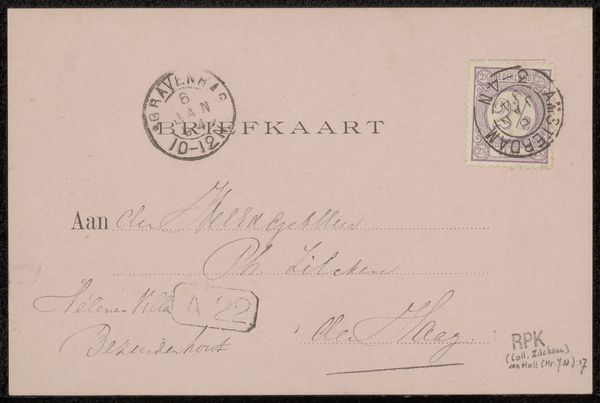 'S GRAVENHAGE
6
JAN
94
10-12V
AMSTERDAM
JAN
94
2½
BRIEFKAART
Aan den
Ph. Zilcken
Hélène Villa
A 22
Bezuidenhout
den Haag.
RPK
(Coll. Zilcken)
van Hall (Mr. M.N.) : 17